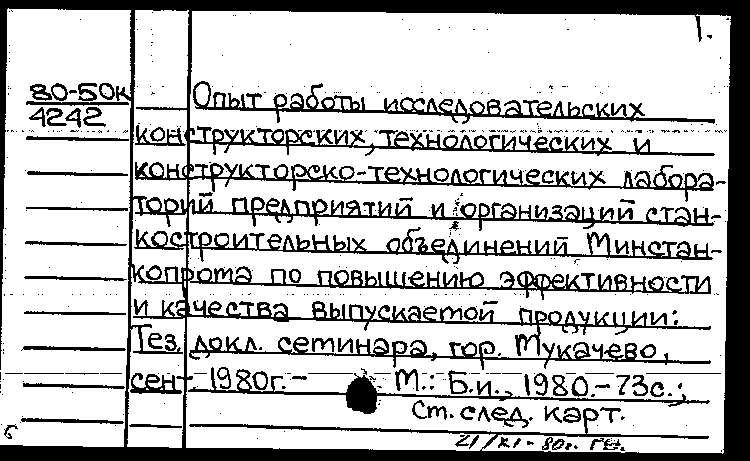 1.
80-50к
4242
Опыт работы исследовательских
конструкторских, технологических и
конструкторско-технологических лабора-
торий предприятий и организаций стан-
костроительных объединений Минстан-
копрома по повышению эффективности
и качества выпускаемой продукции:
Тез. докл. семинара, гор. Мукачево,
сент 1980г. - М.: Б.и., 1980.-73с.;
См. след. карт.
21/XI-80г.